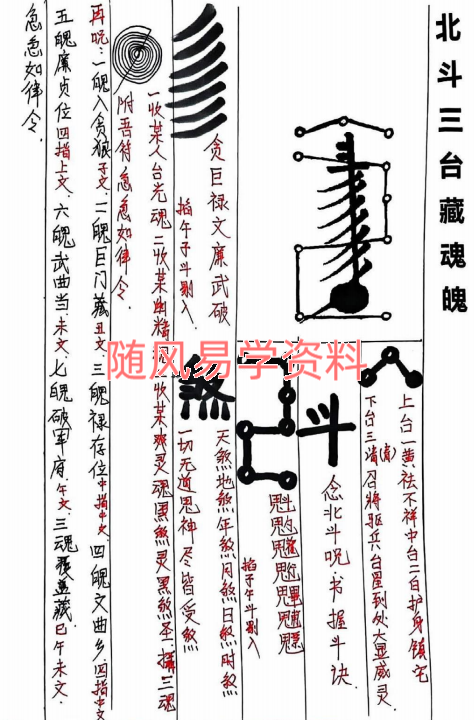 北斗三台藏魂魄
上台一黄祛不祥中台二白护身镇宅
下台三清(青)召將驱兵台星到处大显威灵
斗
念北斗呪.书握斗诀.
掐子午斗剔入
煞
天煞地煞年煞月煞日煞时煞
一切无道鬼神尽皆受煞
贪巨禄文廉武破
掐午子斗剔入.
一收某人台光魂二收某幽精魂三收某爽灵魂黑煞灵黑煞圣.
三魂
附吾符急急如律令.
再呪:一魄入贪狼子文.二魄巨门藏丑文.三魄禄存位中指中文.四魄文曲乡四指中文
五魄廉贞位四指上文.六魄武曲当未文.七魄破军府.午文.三魂藏巳午未文.
急急如律令.
随风易学资料